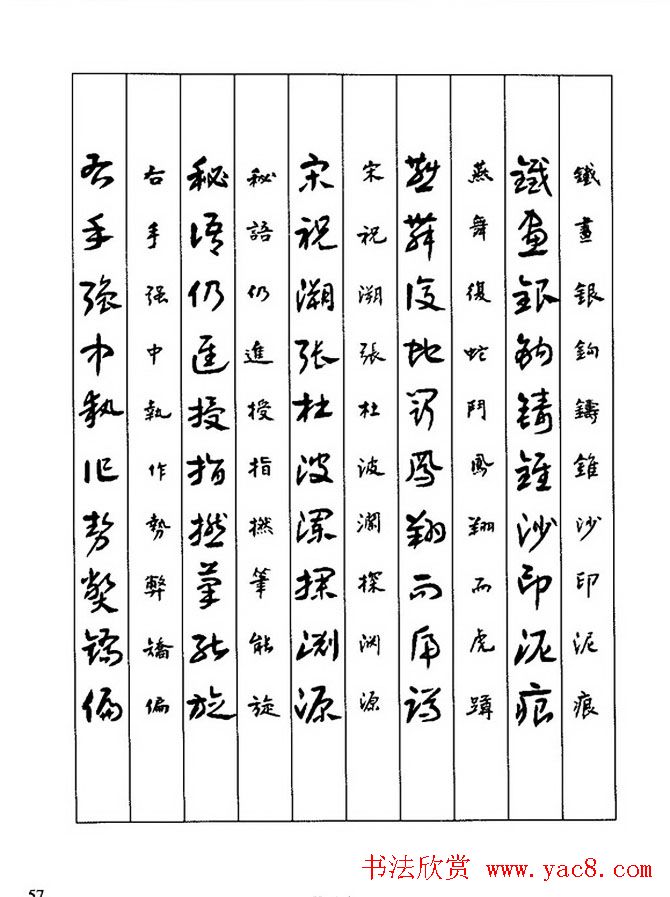 鐵畫銀鈎鑄錐沙印泥痕
鐵畫銀鈎鑄錐沙印泥痕
燕舞復蛇鬥鳳翔而虎蹲
燕舞復蛇鬥鳳翔而虎蹲
宋祝溯張杜波瀾探渊源
宋祝溯張杜波瀾探渊源
秘語仍進授指撚筆能旋
秘語仍進授指撚筆能旋
右手强中執作勢弊矯偏
右手强中執作勢弊矯偏
书法欣赏 www.yac8.com
57